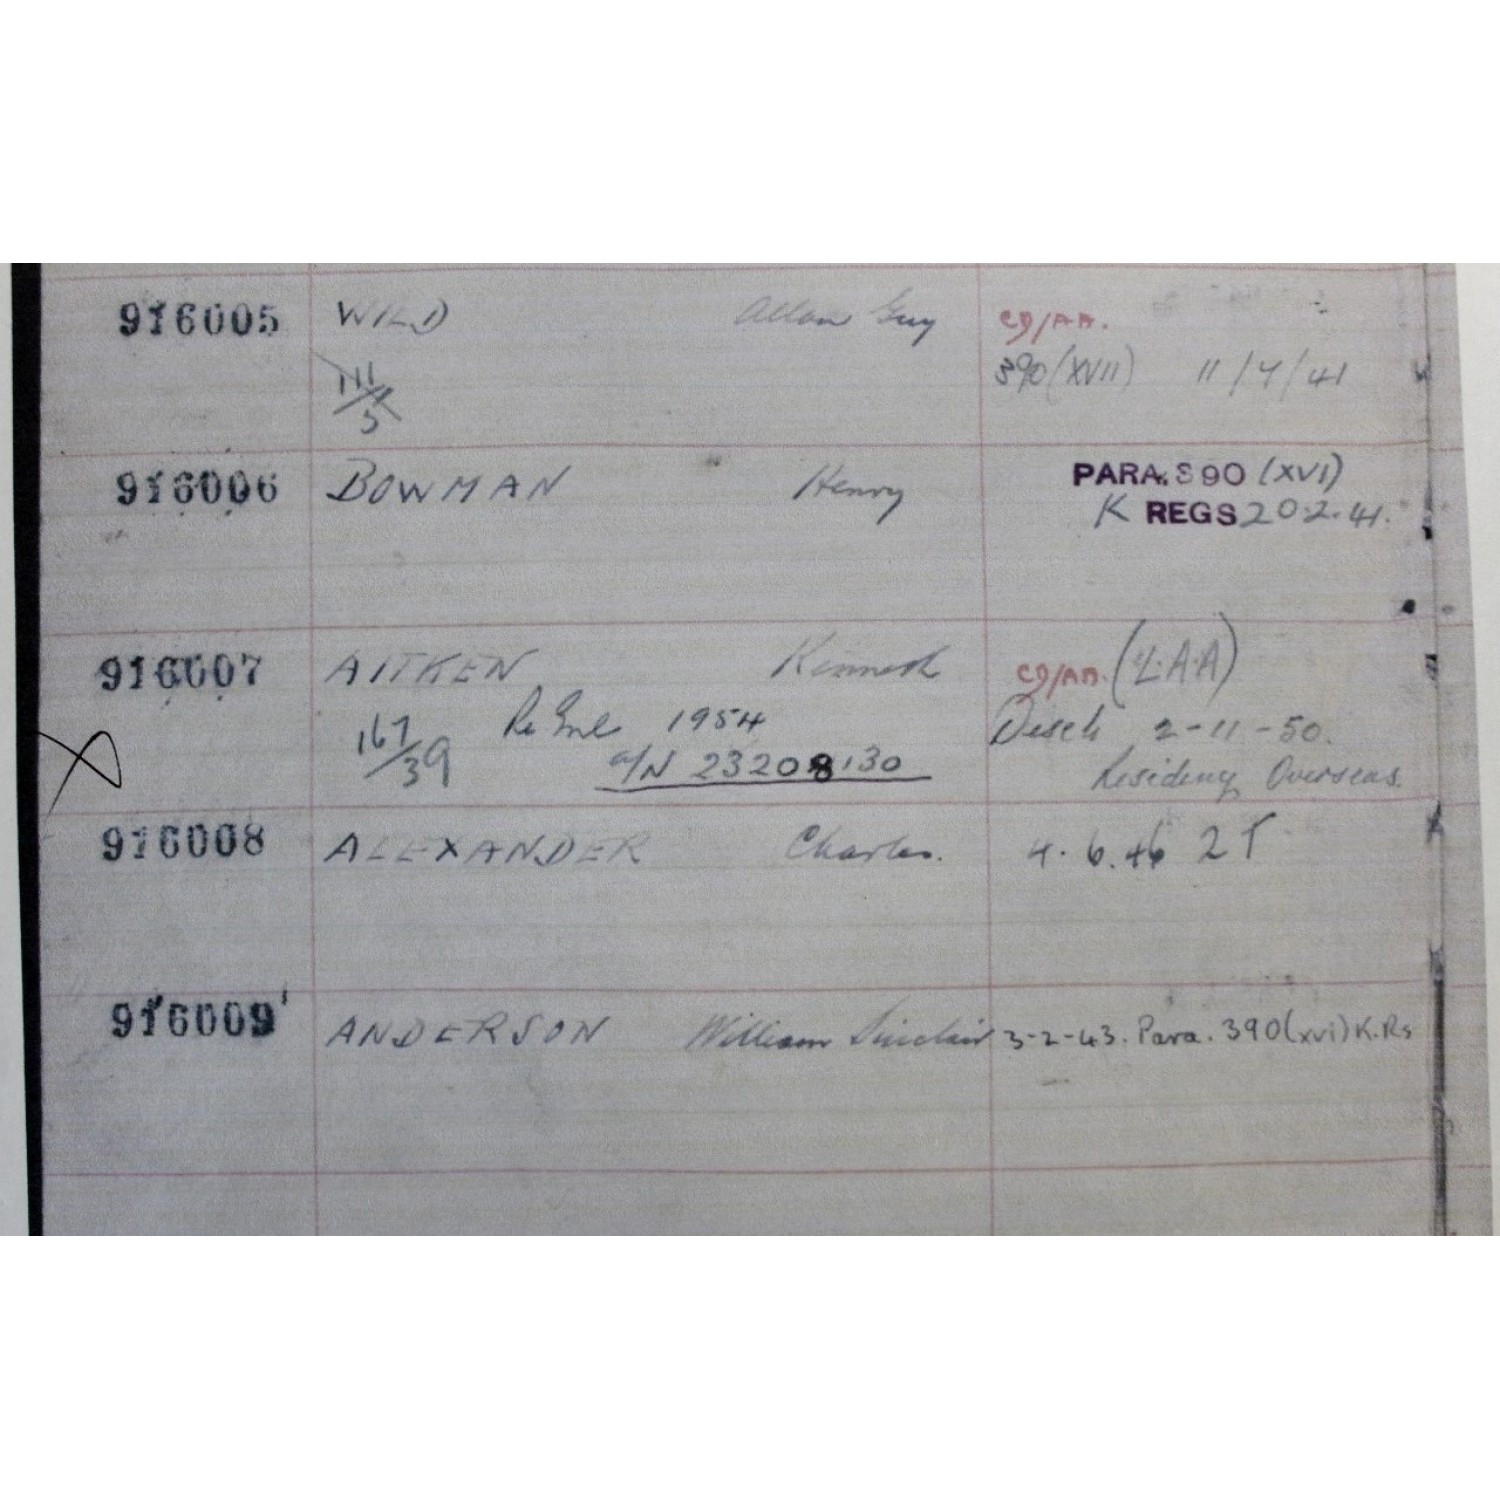 916005 WILD Allan Guy CD/AA.
111/5 390 (XVII) 11/7/41
916006 BOWMAN Henry PARA. 390 (XVI)
K REGS 20.2.41.
916007 AITKEN Kenneth CD/AA. (L.A.A)
167/39 Re Enl 1954 Disch 2-11-50.
A/N 23208130 Residing Overseas.
916008 ALEXANDER Charles. 4.6.46 2T
916009 ANDERSON William Sinclair 3-2-43. Para. 390 (xvi) K.Rs